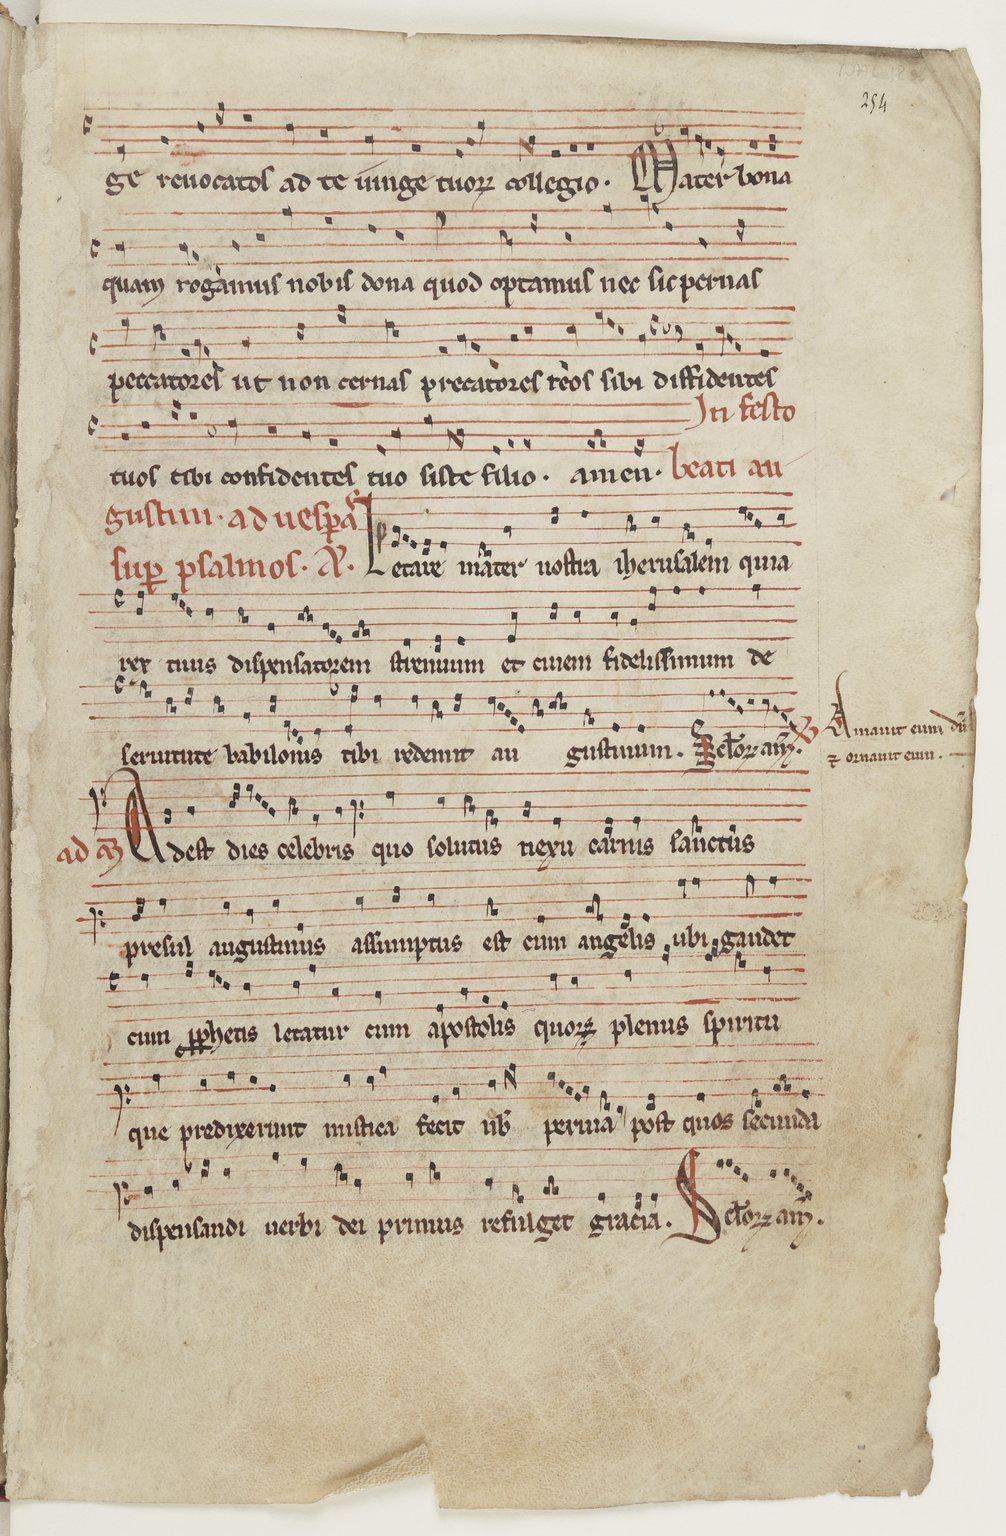 254
ge revocatos ad te iunge tuoꝝ collegio. Mater bona
quam rogamus nobis dona quod optamus nec sic pernas
peccatores ut non cernas precatores reos sibi diffidentes
In festo
tuos tibi confidentes tuo siste filio. amen. beati au
gustini. ad uesꝑas
suꝑ psalmos. A. Letare mater nostra iherusalem quia
rex tuus dispensatorem strenuum et ciuem fidelissimum de
seruitute babilonis tibi redemit au gustinum. Sclꝝ am̄.
Amauit eum dn̄s
⁊ ornauit eum.
ad
Adest dies celebris quo solutus nexu carnis sanctus
presul augustinus assumptus est cum angelis ubi gaudet
cum ꝓphetis letatur cum apostolis quoꝝ plenus spiritu
que predixerunt mistica fecit nob̄ peruia post quos secunda
dispensandi uerbi dei primus refulget gracia. Sclꝝ am̄.